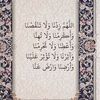 اللَّهُمَّ زِدْنَا وَلَا تَنْقُصْنَا
وَأَكْرِمْنَا وَلَا تُهِنَّا
وَأَعْطِنَا وَلَا تَحْرِمْنَا
وَآثِرْنَا وَلَا تُؤْثِرْ عَلَيْنَا
وَأَرْضِنَا وَارْضَ عَنَّا